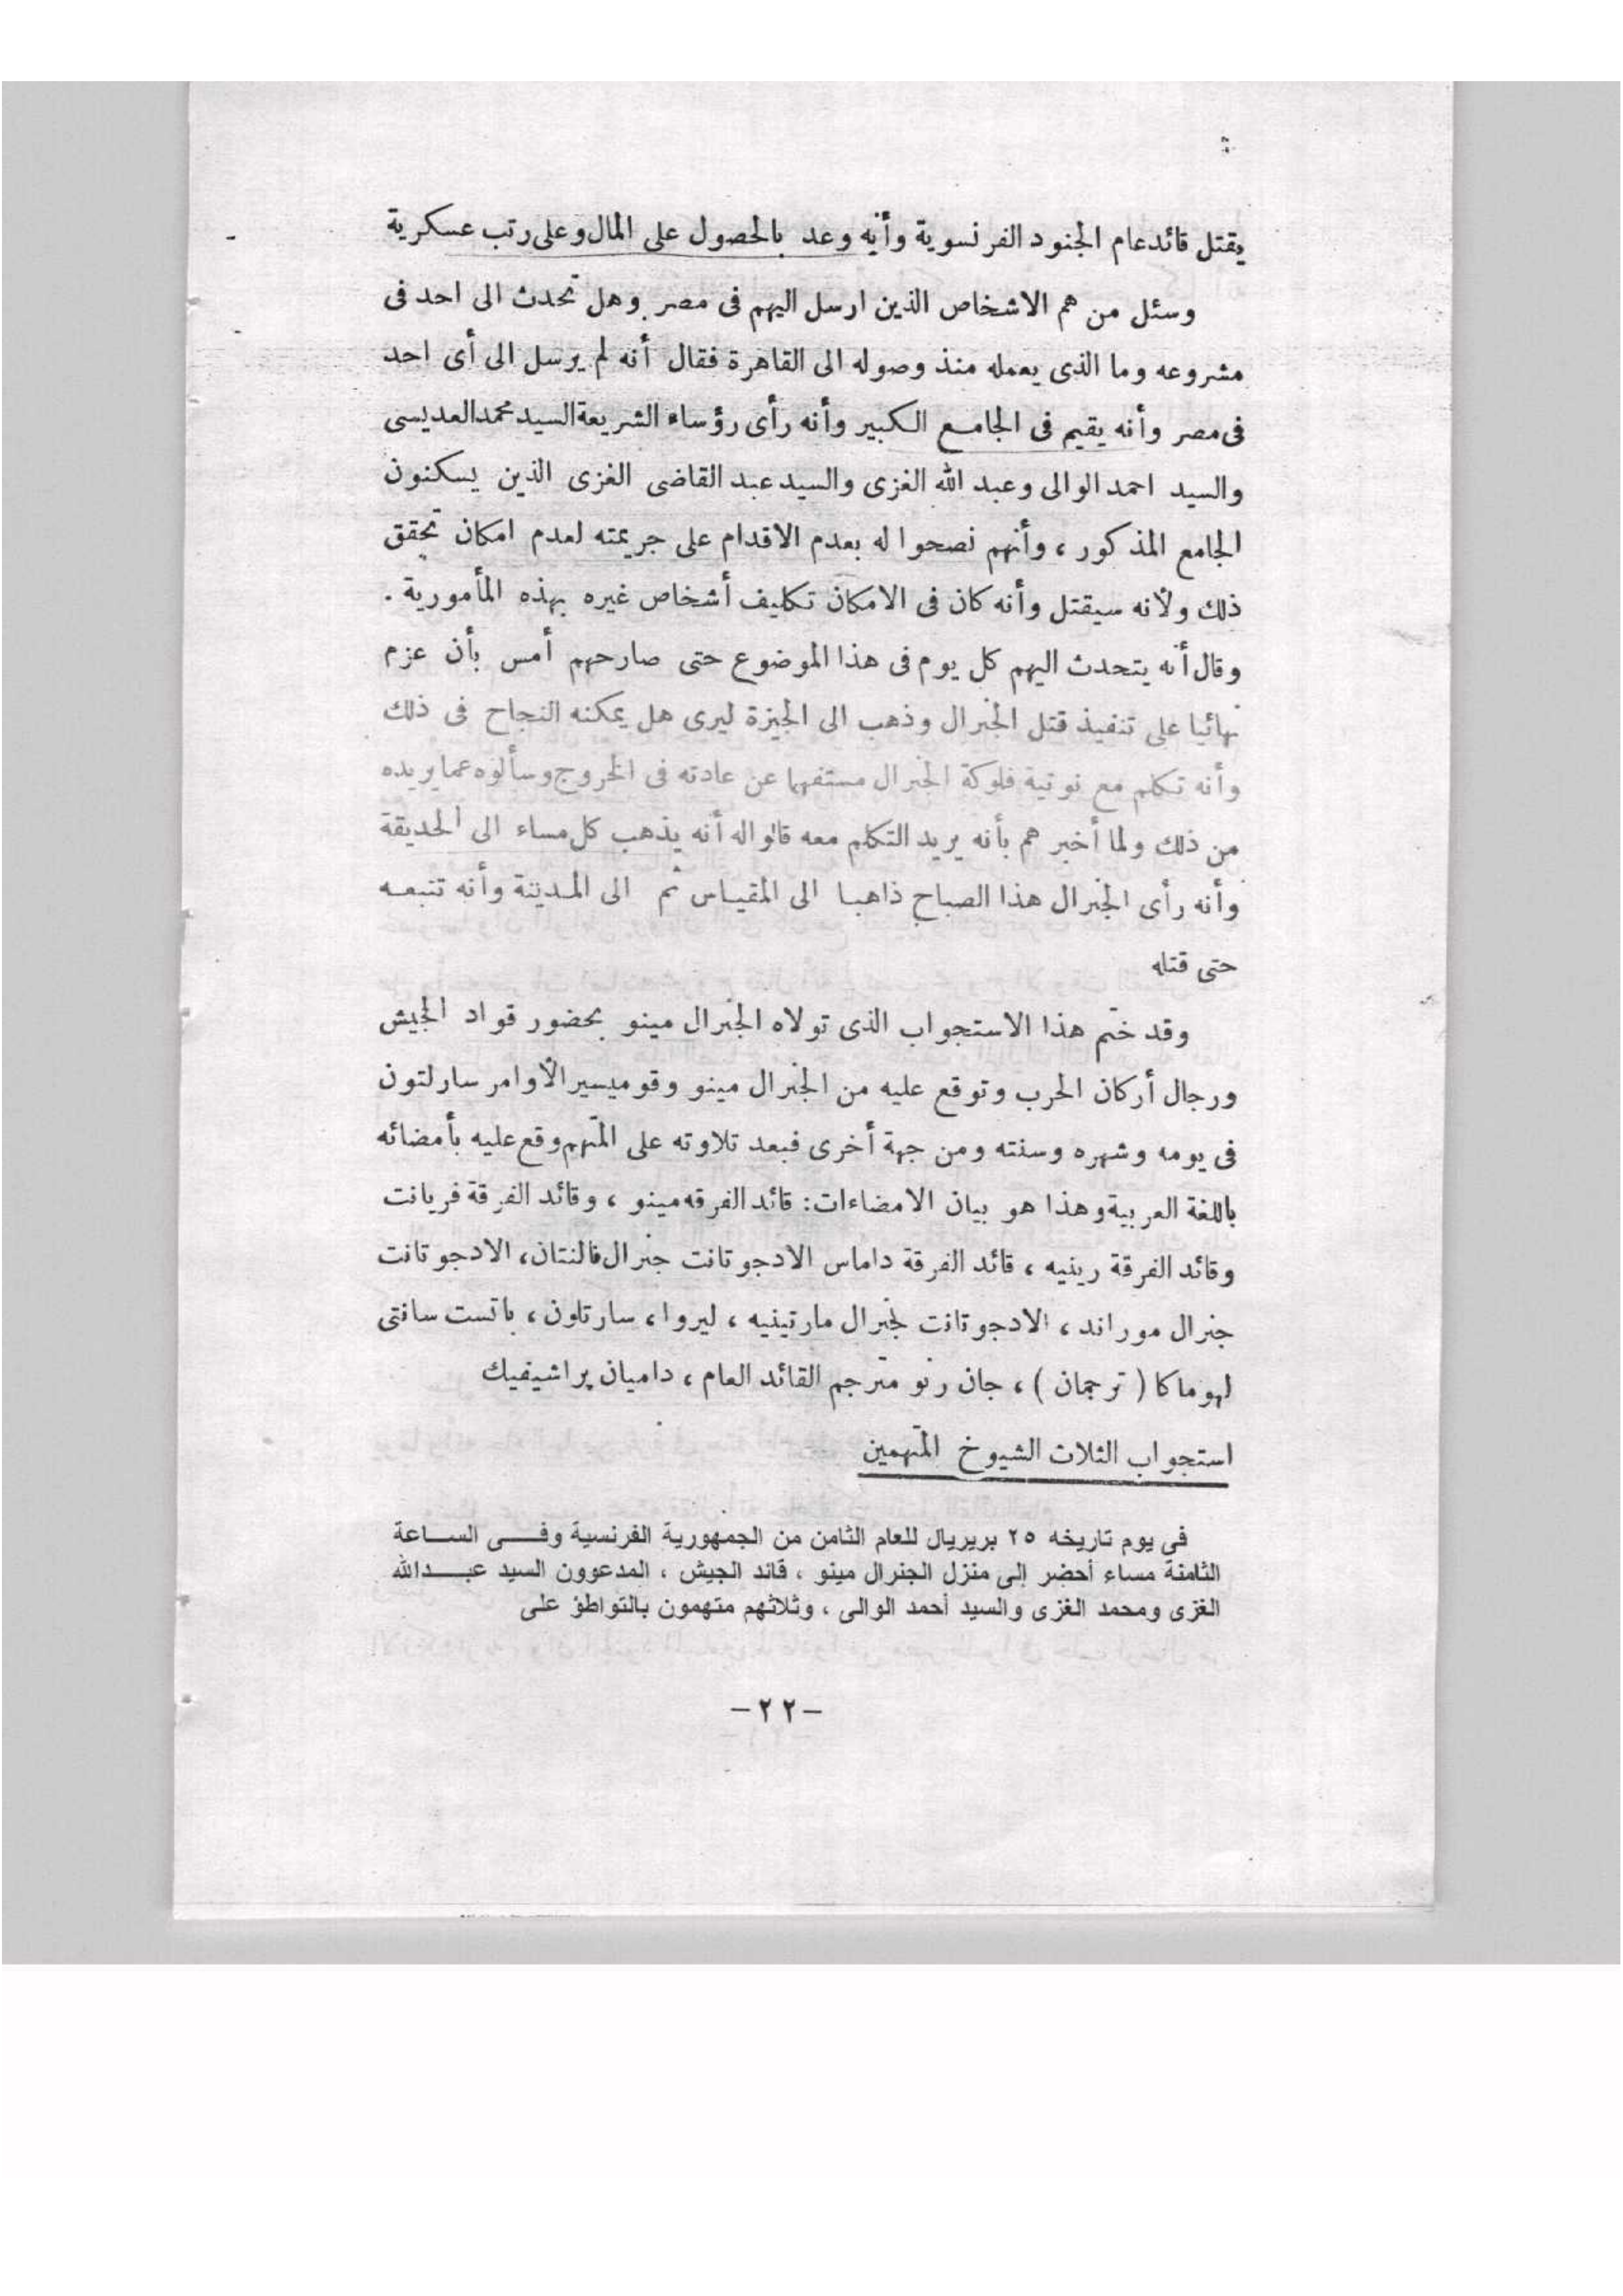 يقتل قائد عام الجنود الفرنسوية وأنه وعد بالحصول على المال وعلى رتب عسكرية
وسئل من هم الاشخاص الذين ارسل اليهم فى مصر وهل تحدث الى احد فى
مشروعه وما الذى يعمله منذ وصوله الى القاهرة فقال أنه لم يرسل الى أى احد
فى مصر وأنه يقيم فى الجامع الكبير وأنه رأى رؤساء الشريعة السيد محمد العديسى
والسيد احمد الوالى وعبد الله الغزى والسيد عبد القاضى الغزى الذين يسكنون
الجامع المذكور ، وأنهم نصحوا له بعدم الاقدام على جريمته لعدم امكان تحقق
ذلك ولأنه سيقتل وأنه كان فى الامكان تكليف أشخاص غيره بهذه المأمورية .
وقال أنه يتحدث اليهم كل يوم فى هذا الموضوع حتى صارحهم أمس بأن عزم
نهائيا على تنفيذ قتل الجنرال وذهب الى الجيزة ليرى هل يمكنه النجاح فى ذلك
وأنه تكلم مع نوتية فلوكة الجنرال مستفهما عن عادته فى الخروج وسألوه عما يريده
من ذلك ولما أخبرهم بأنه يريد التكلم معه قالوا له أنه يذهب كل مساء الى الحديقة
وأنه رأى الجنرال هذا الصباح ذاهبا الى المقياس ثم الى المدينة وأنه تتبعه
حتى قتله
وقد ختم هذا الاستجواب الذى تولاه الجنرال مينو بحضور قواد الجيش
ورجال أركان الحرب وتوقع عليه من الجنرال مينو وقوميسير الأوامر سارلتون
فى يومه وشهره وسنته ومن جهة أخرى فبعد تلاوته على المتهم وقع عليه بأمضائه
باللغة العربية وهذا هو بيان الامضاءات: قائد الفرقه مينو ، وقائد الفرقة فريانت
وقائد الفرقة رينيه ، قائد الفرقة داماس الادجوتانت جنرال فالنتان، الادجوتانت
جنرال موراند ، الادجوتانت لجنرال مارتينيه ، ليروا ، سارتلون ، باتست سانتى
لهوماكا ( ترجمان ) ، جان رنو مترجم القائد العام ، داميان براشيفيك
استجواب الثلاث الشيوخ المتهمين
فى يوم تاريخه ٢٥ بريريال للعام الثامن من الجمهورية الفرنسية وفى الساعة
الثامنة مساء أحضر إلى منزل الجنرال مينو ، قائد الجيش ، المدعوون السيد عبدالله
الغزى ومحمد الغزى والسيد أحمد الوالى ، وثلاثهم متهمون بالتواطؤ على
-٢٢-